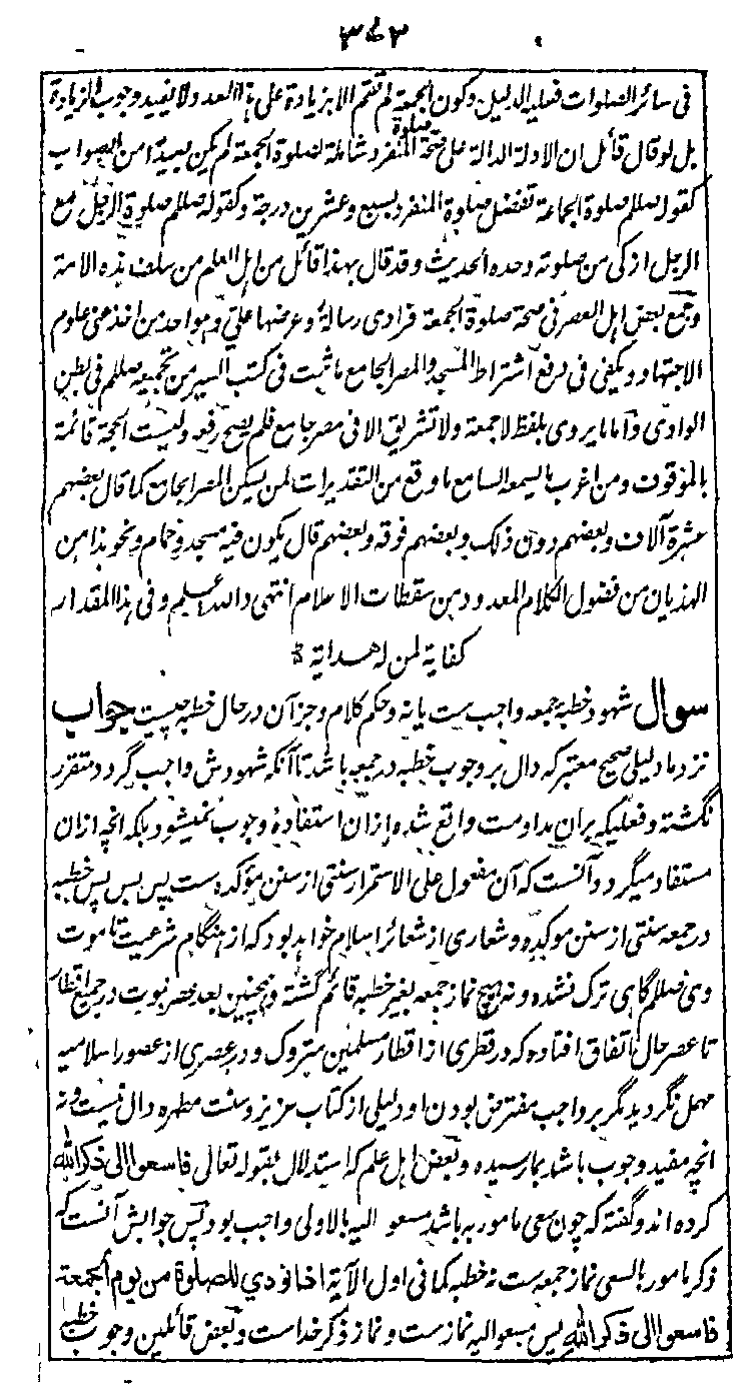 ۳۷۳
فی سائر الصلوات فعلیه الدلیل وکون الجمعة لم تقم الا بزیادة علی هذا العدد ولا یفید وجوب الزیادة
بل لو قال قائل ان الادلة الدالة علی صحة صلوة المنفرد شاملة لصلوة الجمعة لم یکن بعیدا من الصواب
کقوله صللم صلوة الجماعة تفضل صلوة المنفرد بسبع وعشرین درجة وکقوله صللم صلوة الرجل مع
الرجل ازکی من صلوته وحده الحدیث وقد قال بهذا قائل من اهل العلم من سلف هذه الامة
وجمع بعض اهل العصر فی صحة صلوة الجمعة فرادی رسالة وعرضها علیّ وهو احد من اخذ عنی علوم
الاجتهاد ویکفی فی دفع اشتراط المسجد والمصر الجامع ما ثبت فی کتب السیر من تجمیعه صللم فی بطن
الوادی واما ما یروی بلفظ لا جمعة ولا تشریق الا فی مصر جامع فلم یصح رفعه ولیست الحجة قائمة
بالموقوف ومن اغرب ما یسمعه السامع ما وقع من التقدیرات لمن یسکن المصر الجامع کما قال بعضهم
عشرة آلاف وبعضهم دون ذلک وبعضهم فوقه وبعضهم قال یکون فیه مسجد وحمام ونحو هذا من
الهذیان من فضول الکلام المعدود من سقطات الاعلام انتهی والله علیم وفی هذا المقدار
کفایة لمن له هدایة
سوال شهود خطبه جمعه واجب ست یا نه وحکم کلام وجز آن در حال خطبه چیست جواب
نزد ما دلیلی صحیح معتبر که دال بر وجوب خطبه در جمعه باشد تا آنکه شهودش واجب گردد متقرر
نگشته وفعلیکه بران مداومت واقع شده ازان استفادهٔ وجوب نمیشود بلکه انچه ازان
مستفاد میگردد آنست که آن مفعول علی الاستمرار سنتی از سنن مؤکده ست پس بس پس خطبه
در جمعه سنتی از سنن موکده وشعاری از شعائر اسلام خواهد بود که از هنگام شرعیت تا موت
وی صللم گاهی ترک نشده ونه هیچ نماز جمعه بغیر خطبه قائم گشته وهمچنین بعد عصر نبوت در جمیع اقطار
تا عصر حال اتفاق افتاده که در قطری از اقطار مسلمین متروک ودر عصری از عصور اسلامیه
مهمل نگردید مگر بر واجب مفترض بودن او دلیلی از کتاب عزیز وسنت مطهره دال نیست ونه
انچه مفید وجوب باشد بما رسیده وبعض اهل علم که استدلال بقوله تعالی فاسعوا الی ذکر الله
کرده اند وگفته که چون سعی مامور به باشد مسعو الیه بالاولی واجب بود پس جوابش آنست که
ذکر مامور بالسعی نماز جمعه ست نه خطبه کما فی اول الآیة اذا نودی للصلوة من یوم الجمعة
فاسعوا الی ذکر الله پس مسعو الیه نماز ست ونماز ذکر خداست وبعض قائلین وجوب خطبه